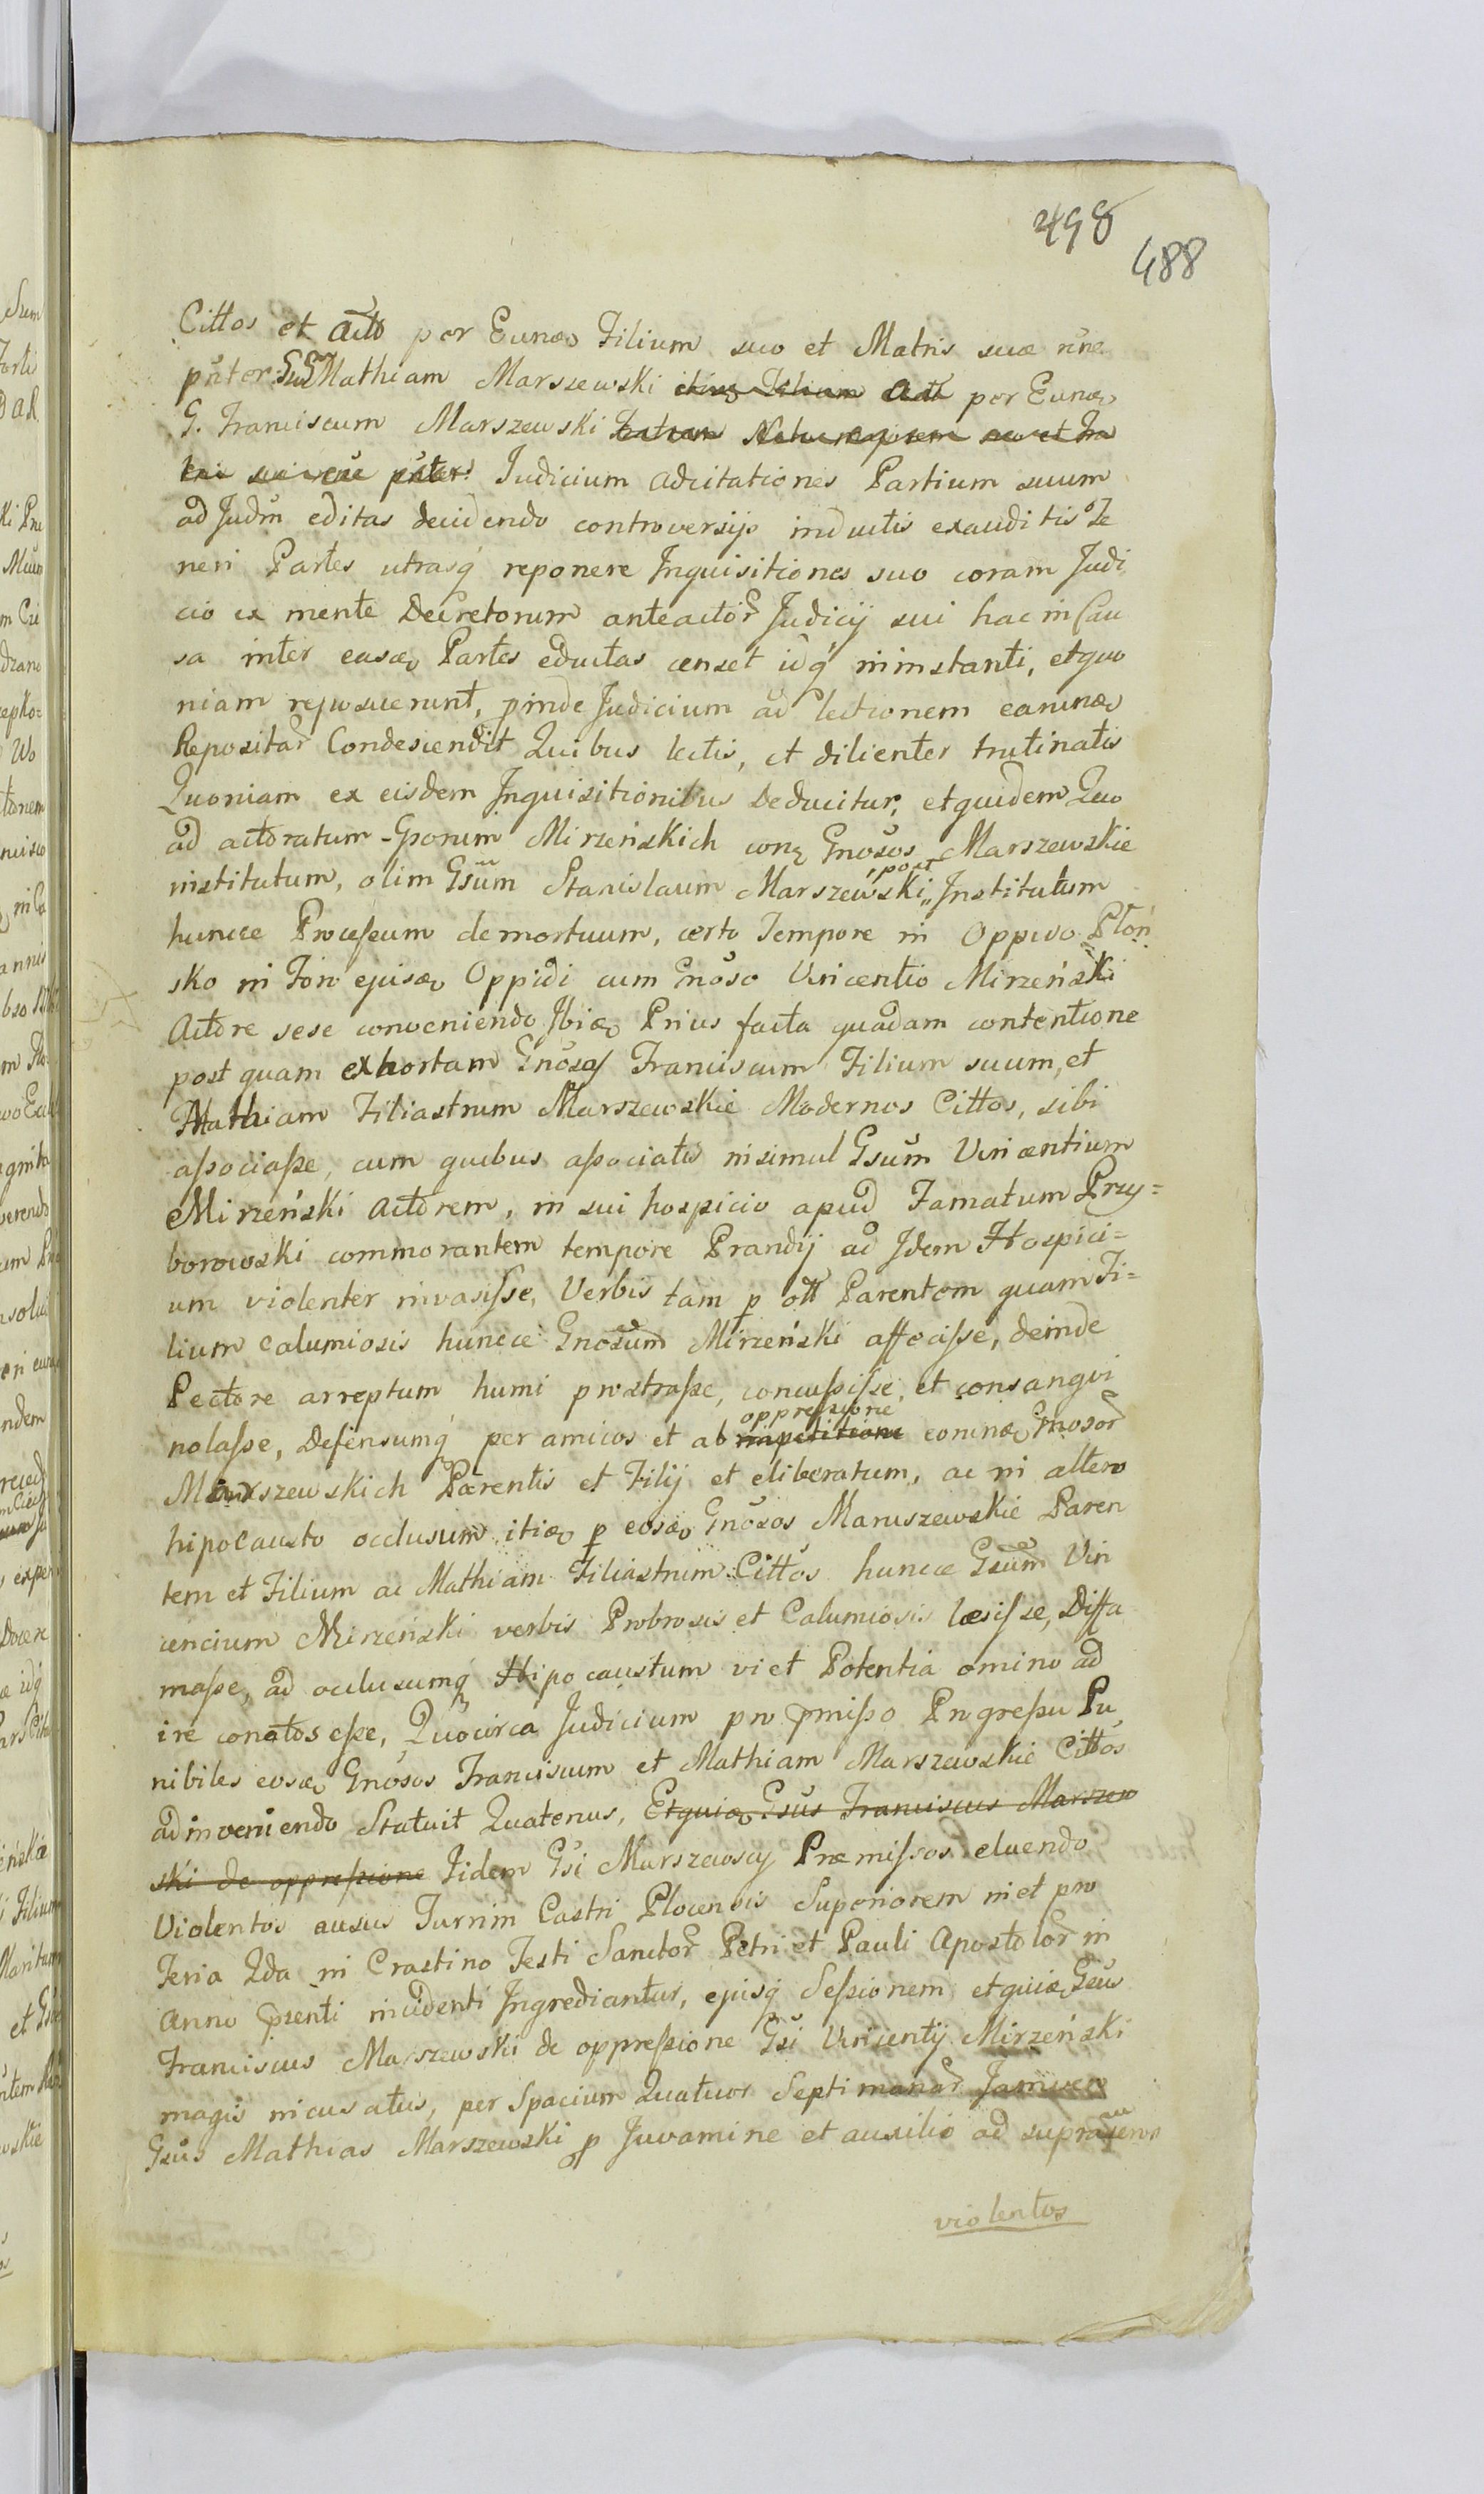 498
488
Cittos et Actô per Eundo Filium suo et Matris suæ nñe
pñter GG Mathiam Marszewski Act per Eundo
G. Franciscum Marszewski
Judicium adcitationes Partium suum
ad Judm̃ editas decidendo controversijs inductis exauditis Te
neri Partes utrasq reponere Inquisitiones suo coram Judi
cio ex mente Decretorum anteactor Judicij sui hac in Cau
sa inter easdo Partes eductas censet idq in instanti, et quo
niam reposuerunt, pinde Judicium ad lectionem earundo
Repositar Condescendit Quibus lectis, et dilienter trutinatis
Quoniam ex eisdem Inquisitionibus Deducitur, et quidem Quo
ad actoratum Gsorum Mirzeńskich con Gnosos Marszewskie
post
institutum, olim Gsũm Stanislaum Marszewski,, Institutum
huncce Processum demortuum, certo Tempore in Oppido Płoń
sko in Foro ejusdo Oppidi cum Gnoso Vincentio Mirzeński
Actore sese conveniendo Ibido Prius facta quadam contentione
post quam exhortam Gnosos Franciscum Filium suum, et
Mathiam Filiastrum Marszewskie Modernos Cittos, sibi
associasse, cum quibus associatis insimul Gsũm Vincentium
Mirzeński Actorem, in sui hospicio apud Famatum Przy=
borowski commorantem tempore Prandij ad Idem Hospici=
um violenter invasisse, Verbis tam p ott Parentem quam Fi=
lium calumiosis huncce Gnosum Mirzeński affecisse, deinde
Pectore arreptum humi prostrasse, concussisse, et consangvi
oppressione
nolasse, Defensumq per amicos et ab impetitione eorundo Gnosor
Marszewskich Parentis et Filij et eliberatum, ac in altero
hipocausto occlusum, itido p eosdo Gnosos Maruszewskie Paren
tem et Filium ac Mathiam Filiastrum Cittos huncce Gsũm Vin
cencium Mirzeński verbis Probrosis et Calumiosis læsisse, Diffa
masse, ad occlusumq Hipocaustum vi et Potentia omino ad
ire conatos esse, Quocirca Judicium pro pmisso Progressu Pu
nibiles eosdo Gnosos Franciscum et Mathiam Marszewskie Cittos
adinveniendo Statuit Quatenus, Et quia Gsus Franciscus Marszew
ski de oppressione Iidem Gsi Marszewscy Præmissos eluendo
Violentos ausus Turrim Castri Plocensis Superiorem in et pro
Feria 2da in Crastino Festi Sanctor Petri et Pauli Apostolor in
anno psenti incidenti Ingrediantur, ejusq Sessionem, et quidem Gsus
Franciscus Marszewski de oppressione Gsi Vincentij Mirzeński
magis incusatus, per Spacium Quatuor Septimanar
Gsus Mathias Marszewski p Juvamine et auxilio ad supra
violentos